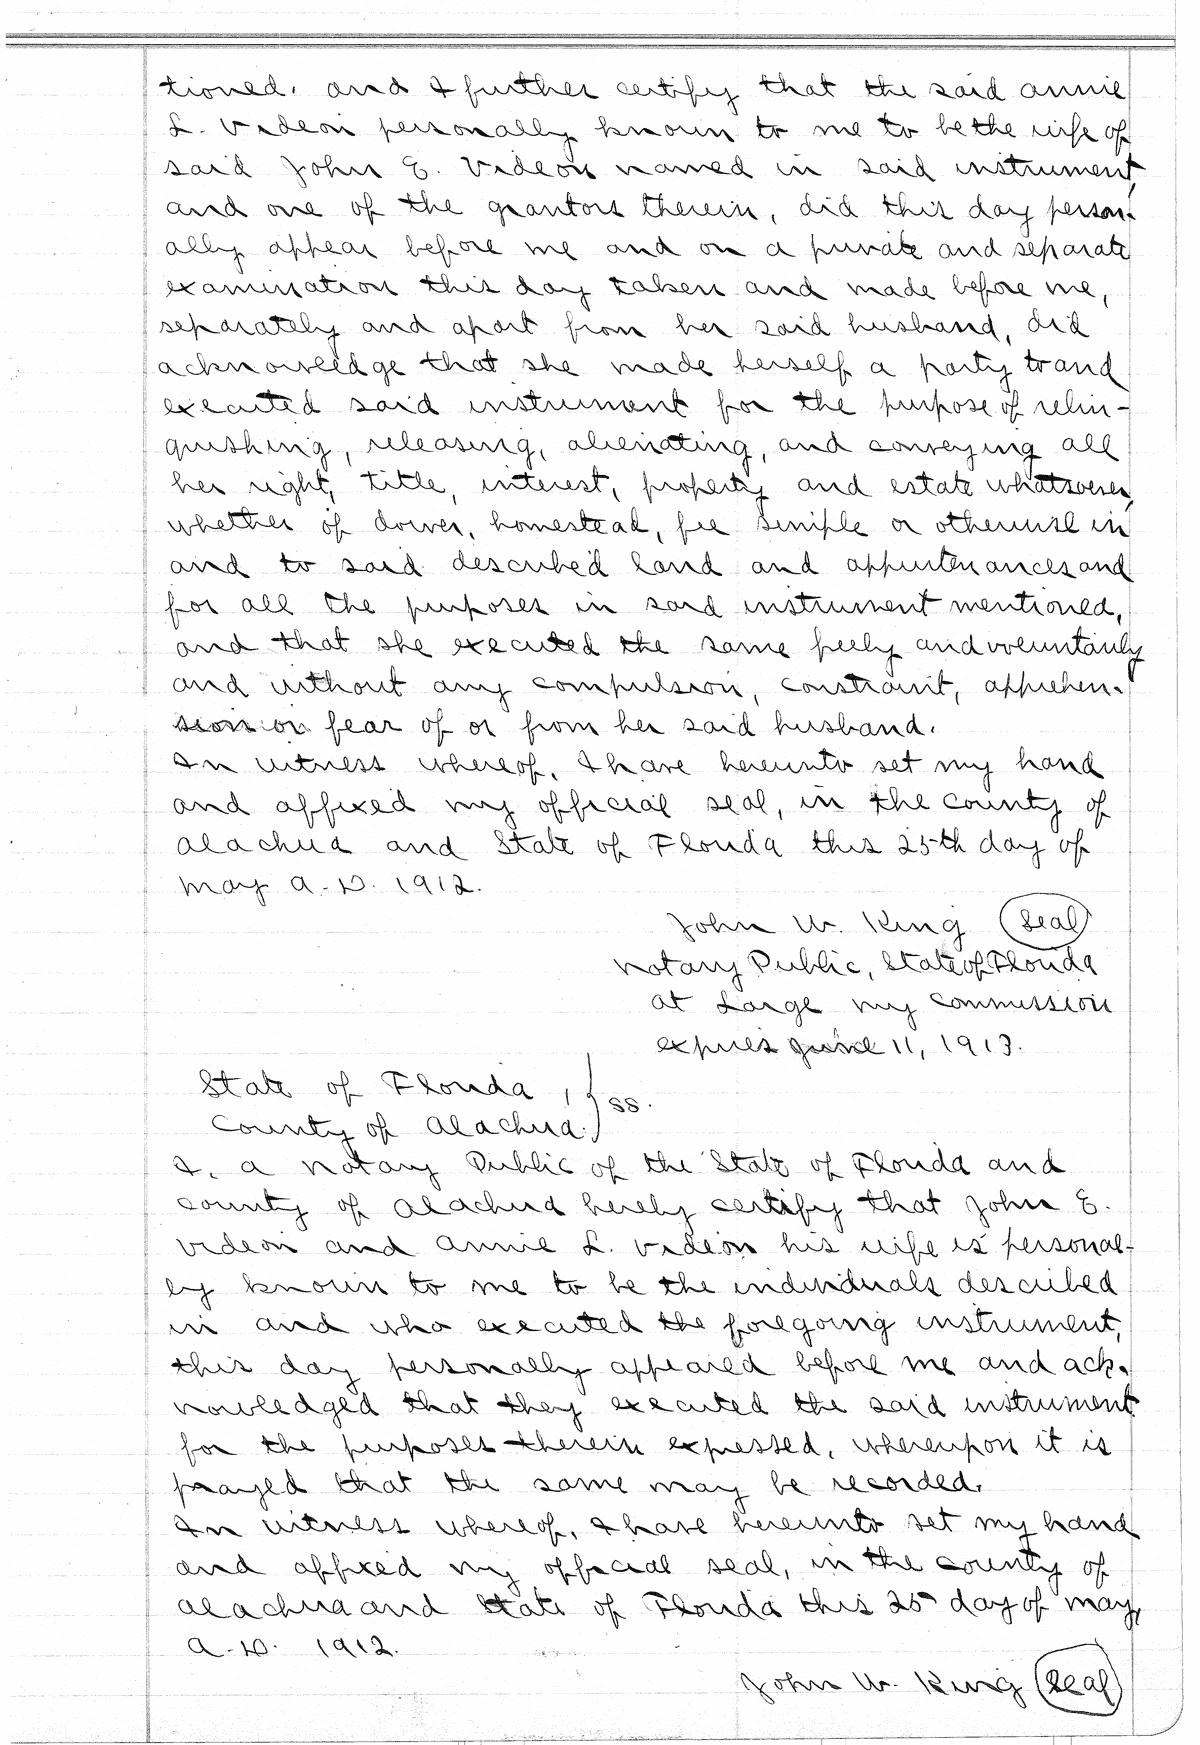 tioned. and I further certify that the said annie
L. Videon personally known to me to be the wife of
said John E. Videon named in said instrument,
and one of the grantors therein, did this day person-
ally appear before me and on a private and separate
examination this day taken and made before me,
separately and apart from her said husband, did
acknowledge that she made herself a party to and
executed said instrument for the purpose of relin-
quishing, releasing, alienating, and conveying all
her right, title, interest, property and estate whatsoever,
whether of dower, homestead, fee simple or otherwise in
and to said described land and appurtenances and
for all the purposes in said instrument mentioned,
and that she executed the same freely and voluntarily
and without any compulsion, constraint, apprehen-
sion or fear of or from her said husband.
In witness whereof, I have hereunto set my hand
and affixed my official seal, in the county of
Alachua and State of Florida this 25th day of
May A.D. 1912.
John W. King (Seal)
Notary Public, State of Florida
at Large my commission
expires June 11, 1913.
State of Florida, } ss.
County of Alachua.
I, a Notary Public of the State of Florida and
county of Alachua hereby certify that John E.
Videon and Annie L. Videon his wife is personal-
ly known to me to be the individuals described
in and who executed the foregoing instrument,
this day personally appeared before me and ack-
nowledged that they executed the said instrument
for the purposes therein expressed, whereupon it is
prayed that the same may be recorded.
In witness whereof, I have hereunto set my hand
and affixed my official seal, in the county of
Alachua and State of Florida this 25 day of May,
A.D. 1912.
John W. King (Seal)